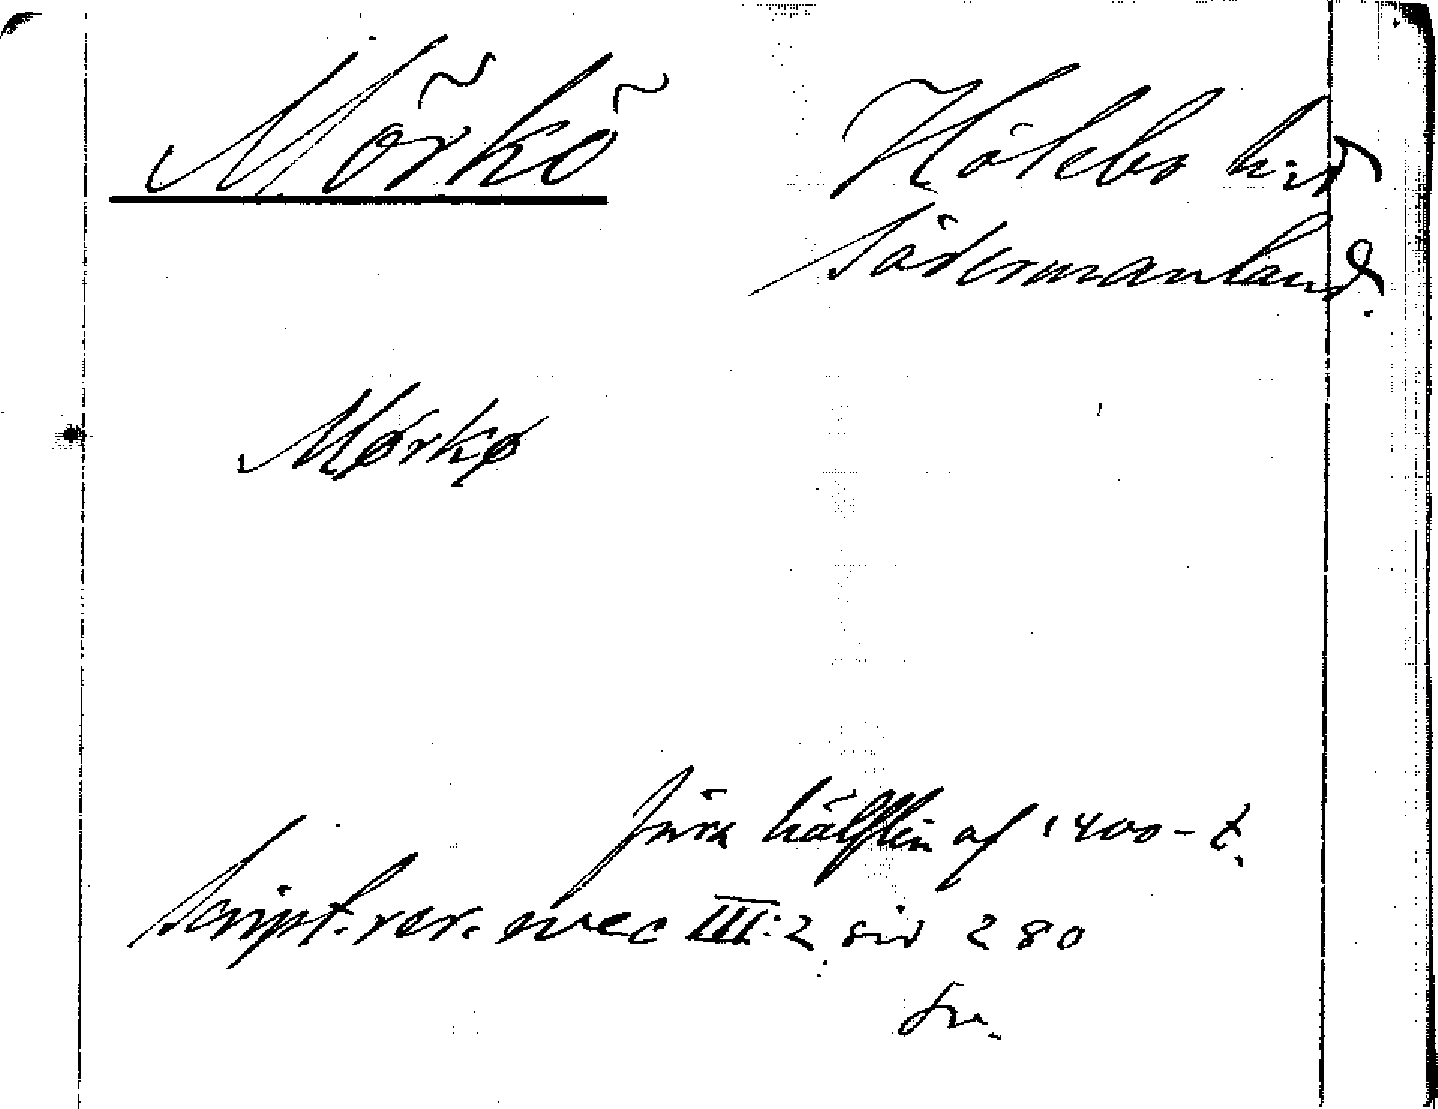 Mörkö Hölebo hd
Södermanland.
Mørkø
förra hälften af 1400-t.
Script. rer. svec III:2 sid 280